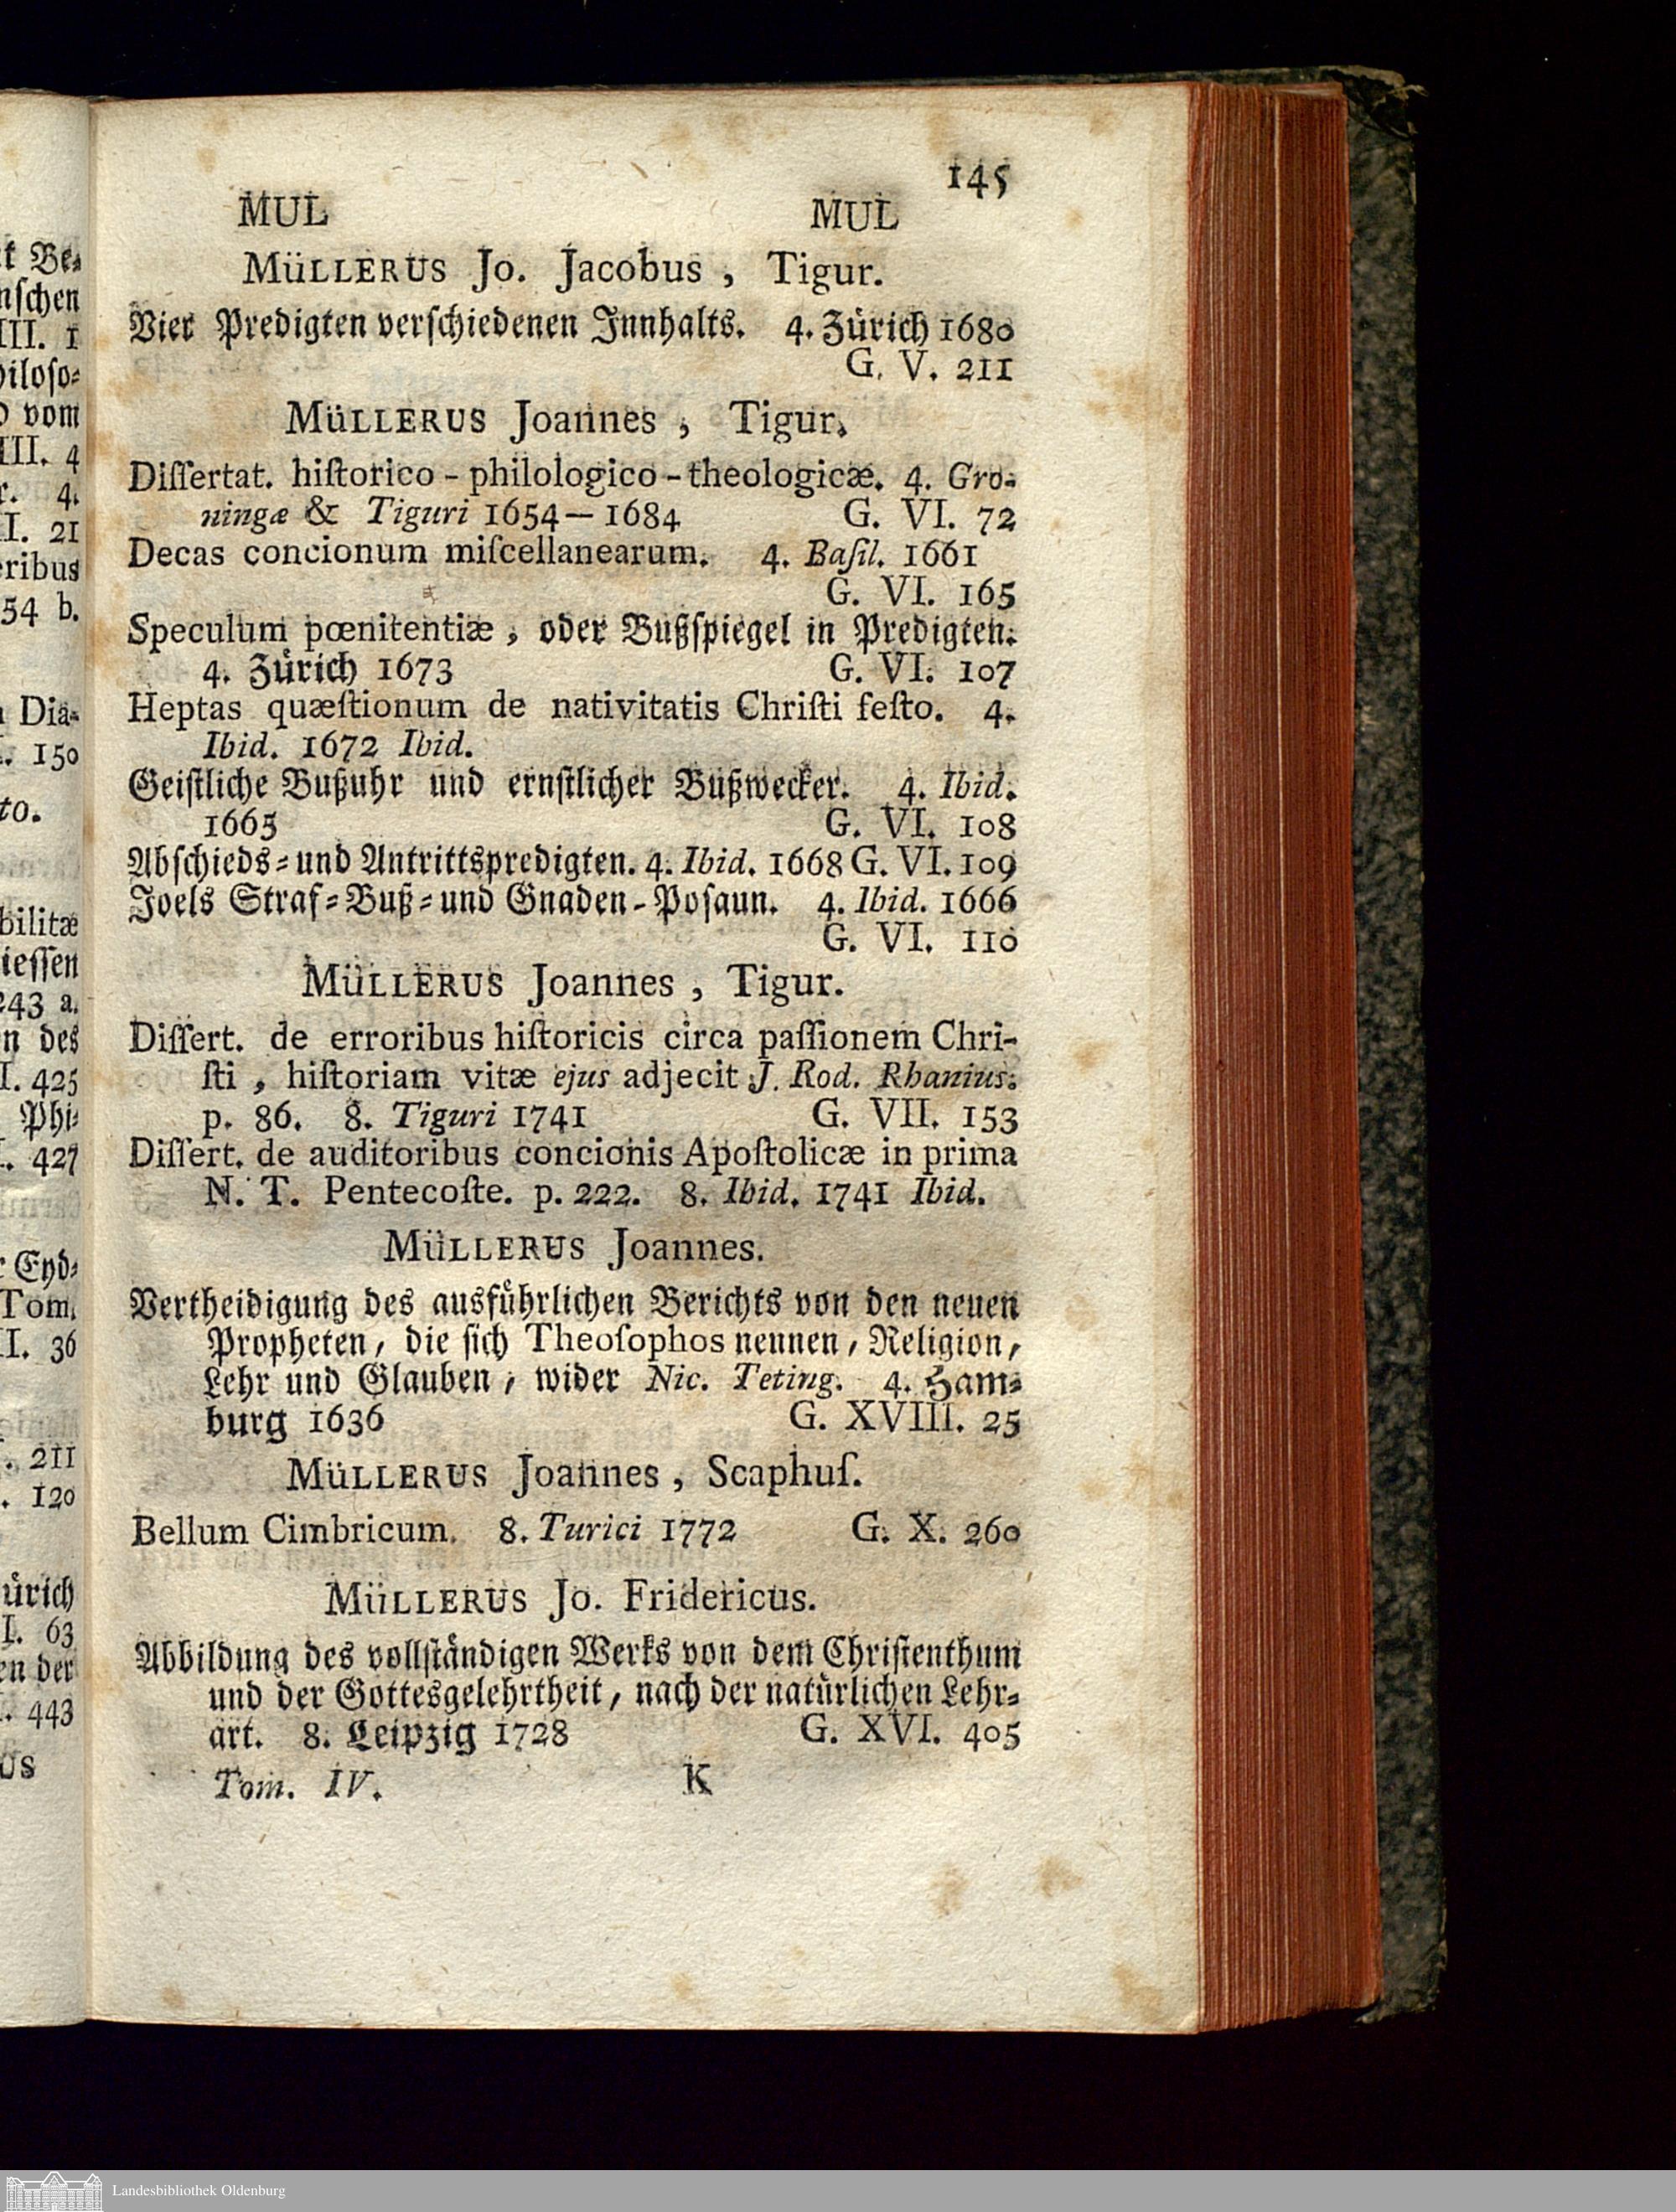 145
MUL MUL
MüLLERUS Jo. Jacobus, Tigur.
Vier Predigten verschiedenen Innhalts. 4. Zürich 1680
G. V. 211
MüLLERUS Joannes, Tigur.
Diſſertat. hiſtorico-philologico-theologicæ. 4. Gro-
ningæ & Tiguri 1654—1684 G. VI. 72
Decas concionum miſcellanearum. 4. Baſil. 1661
G. VI. 165
Speculum pœnitentiæ, oder Bußspiegel in Predigten.
4. Zürich 1673 G. VI. 107
Heptas quæſtionum de nativitatis Chriſti feſto. 4.
Ibid. 1672 Ibid.
Geistliche Bußuhr und ernstlicher Bußwecker. 4. Ibid.
1665 G. VI. 108
Abschieds- und Antrittspredigten. 4. Ibid. 1668 G. VI. 109
Joels Straf-Buß- und Gnaden-Posaun. 4. Ibid. 1666
G. VI. 110
MüLLERUS Joannes, Tigur.
Diſſert. de erroribus hiſtoricis circa paſſionem Chri-
ſti, hiſtoriam vitæ ejus adjecit J. Rod. Rhanius.
p. 86. 8. Tiguri 1741 G. VII. 153
Diſſert. de auditoribus concionis Apoſtolicæ in prima
N. T. Pentecoſte. p. 222. 8. Ibid. 1741 Ibid.
MüLLERUS Joannes.
Vertheidigung des ausführlichen Berichts von den neuen
Propheten, die sich Theoſophos nennen, Religion,
Lehr und Glauben, wider Nic. Teting. 4. Ham-
burg 1636 G. XVIII. 25
MüLLERUS Joannes, Scaphuſ.
Bellum Cimbricum. 8. Turici 1772 G. X. 260
MüLLERUS Jo. Fridericus.
Abbildung des vollständigen Werks von dem Christenthum
und der Gottesgelehrtheit, nach der natürlichen Lehr-
art. 8. Leipzig 1728 G. XVI. 405
Tom. IV. K
Landesbibliothek Oldenburg